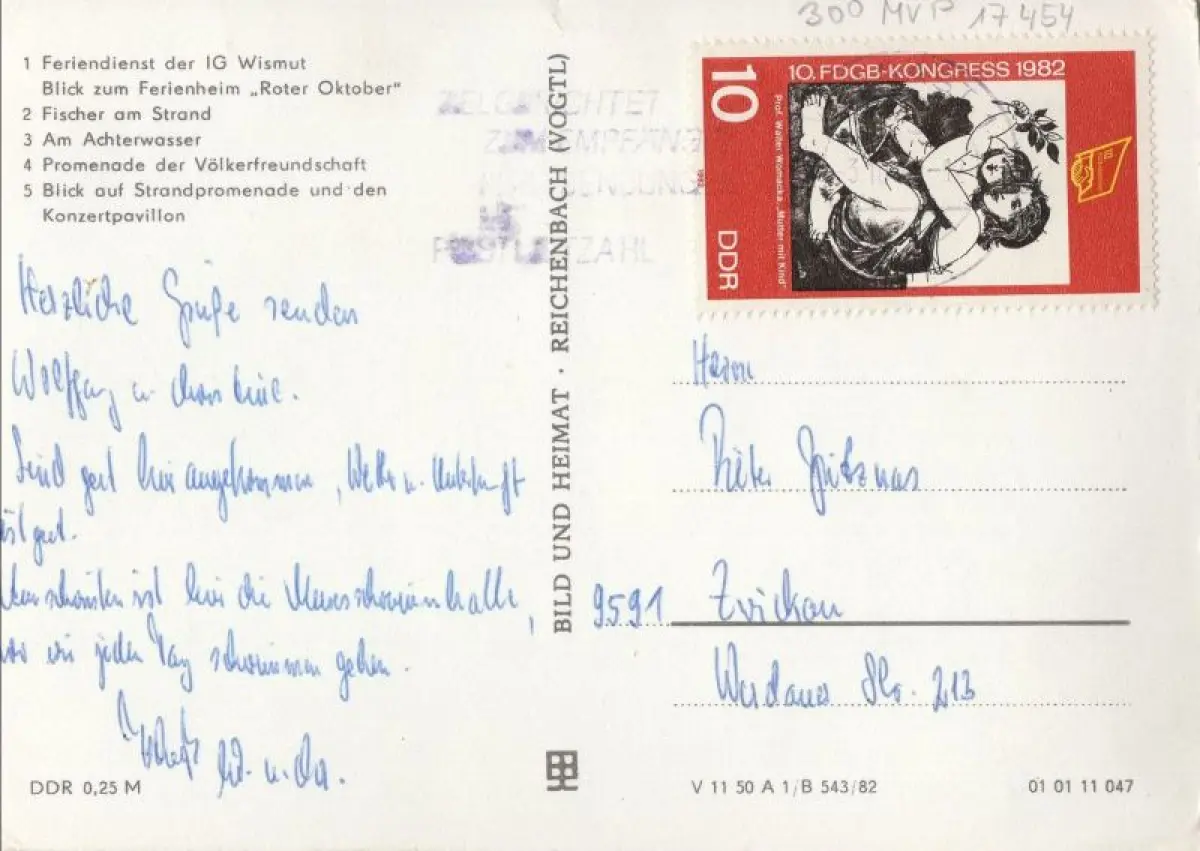 300 MVP 17454
1 Feriendienst der IG Wismut
Blick zum Ferienheim „Roter Oktober"
2 Fischer am Strand
3 Am Achterwasser
4 Promenade der Völkerfreundschaft
5 Blick auf Strandpromenade und den
Konzertpavillon
Herzliche Grüße senden
Wolfgang u. Christine.
Sind gut hier angekommen, Wetter u. Unterkunft
ist gut.
Am schönsten ist hier die Meeresschwimmhalle,
wo wir jeden Tag schwimmen gehen.
DDR 0,25 M
BILD UND HEIMAT · REICHENBACH (VOGTL)
POSTLEITZAHL
10. FDGB-KONGRESS 1982
10
DDR
Prof. Walter Womacka „Mutter mit Kind"
1982
Herrn
Dieter Spitznas
9591 Zwickau
Werdauer Str. 213
V 11 50 A 1/B 543/82
01 01 11 047